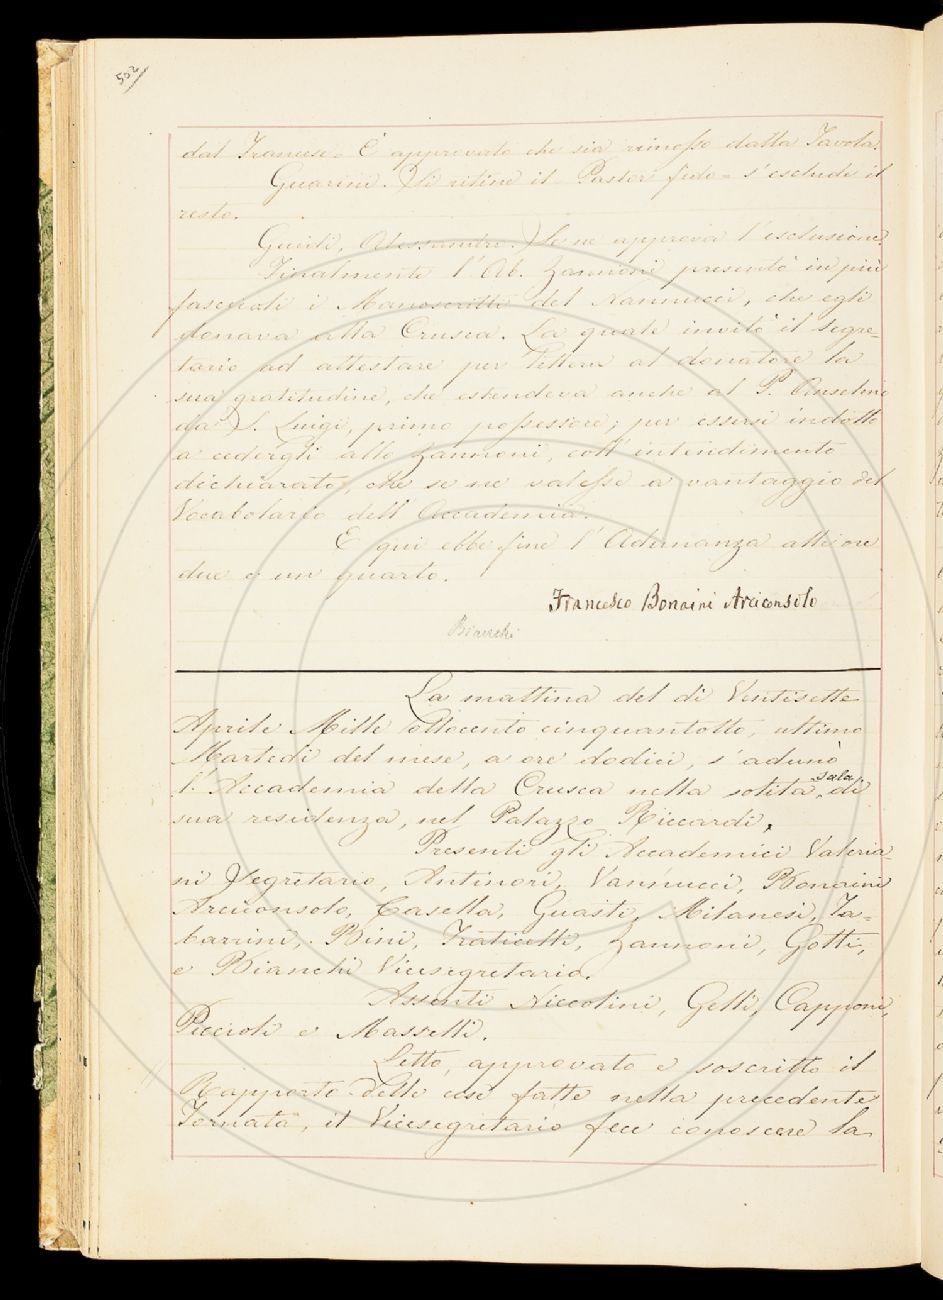 502
dal Francese. È approvato che sia rimosso dalla Tavola.
Guarini. Si ritiene il Pastor fido = s'esclude il
resto.
Guidi, Alessandro. Se ne approva l'esclusione.
Finalmente l'Ab. Zannoni presentò in più
fascicoli i Manoscritti del Nannucci, che egli
donava alla Crusca. La quale invitò il Segre-
tario ad attestare per lettera al donatore la
sua gratitudine, che estendeva anche al P. Anselmo
da S. Luigi, primo possessore; per essersi indotto
a cedergli allo Zannoni, coll'intendimento
dichiarato, che se ne valesse a vantaggio del
Vocabolario dell'Accademia.
E qui ebbe fine l'Adunanza alle ore
due e un quarto.
Francesco Bonaini Arciconsolo
Bianchi
La mattina del dì Ventisette
Aprile Mille ottocento cinquantotto, ultimo
Martedì del mese, a ore dodici, s'adunò
l'Accademia della Crusca nella solita sala di
sua residenza, nel Palazzo Riccardi.
Presenti gli Accademici Valeria-
ni Segretario, Antinori, Vannucci, Bonaini
Arciconsolo, Casella, Guasti, Milanesi, Ta-
barrini, Bini, Fraticelli, Zannoni, Gotti,
e Bianchi Vicesegretario.
Assenti Niccolini, Gelli, Capponi,
Piccioli e Masselli.
Letto, approvato e soscritto il
Rapporto delle cose fatte nella precedente
Tornata, il Vicesegretario fece conoscere la